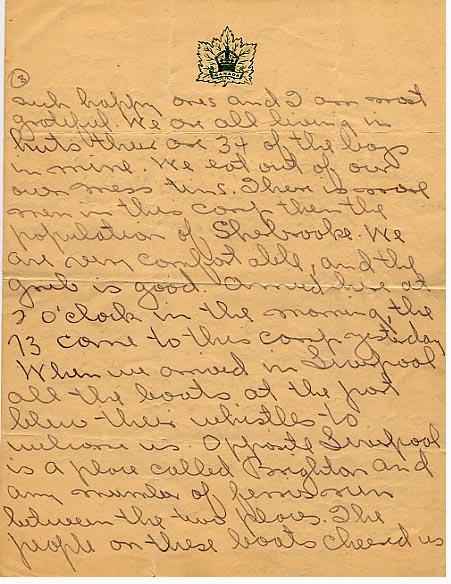 CANADA
3
such happy ones and I am most
grateful. We are all living in
huts their are 34 of the boys
in mine. We eat out of our
own mess tins. There is more
men in this camp then the
population of Shebrooke. We
are very comfortable, and the
grub is good arrived here at
o'clock in the morning, the
13 came to this camp yesterday
When we arrived in Liverpool
all the boats at the port
blew their whistles to
welcome us. Opposite Liverpool
is a place called Brighton and
any number of
between the two places. The
people on these boats cheered us